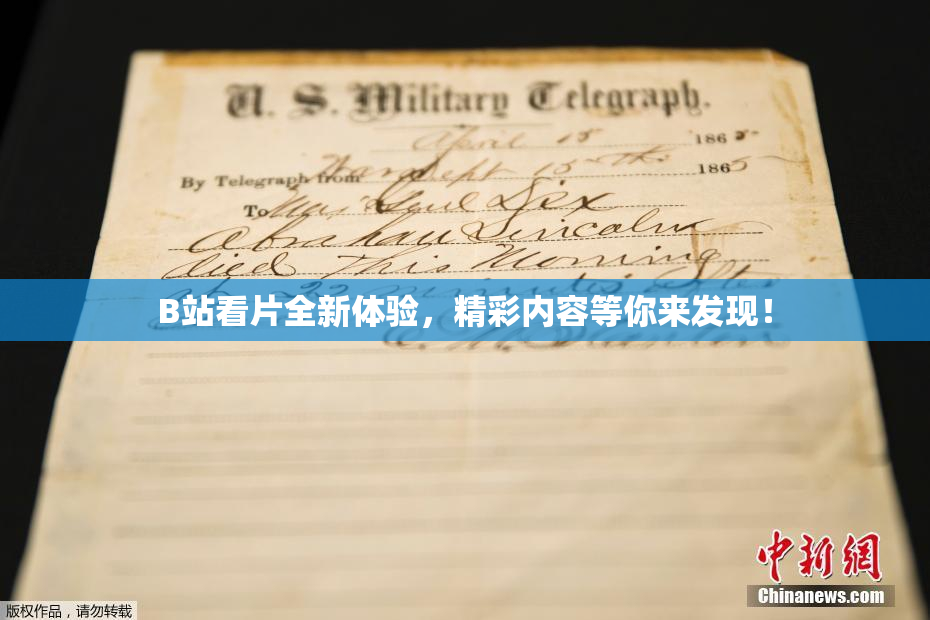 U. S. Military Telegraph.
April 15 1865
By Telegraph from War Dept 15th 1865
To Maj Genl Dix
Abraham Lincoln
died this Morning
at 22 minutes after
B站看片全新体验，精彩内容等你来发现！
E. M. Stanton
中新網
Chinanews.com
版权作品，请勿转载